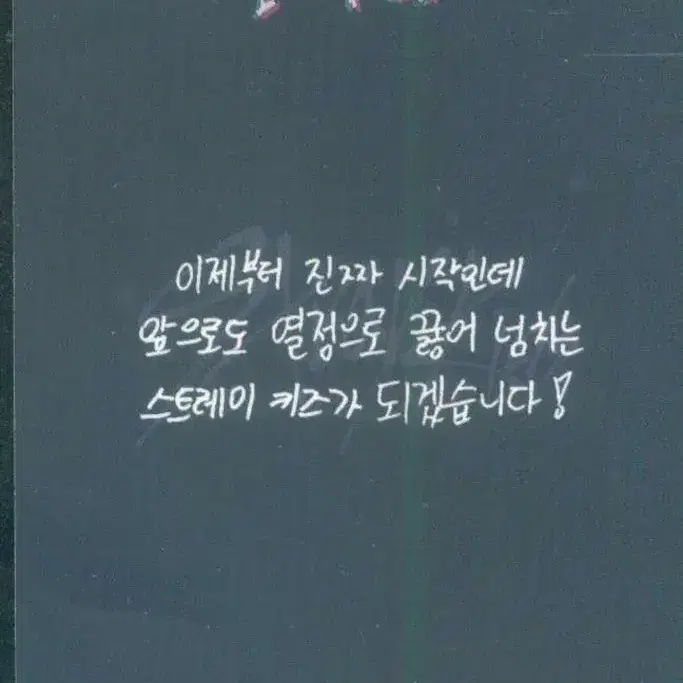 이제부터 진짜 시작인데
앞으로도 열정으로 끓어 넘치는
스트레이 키즈가 되겠습니다!